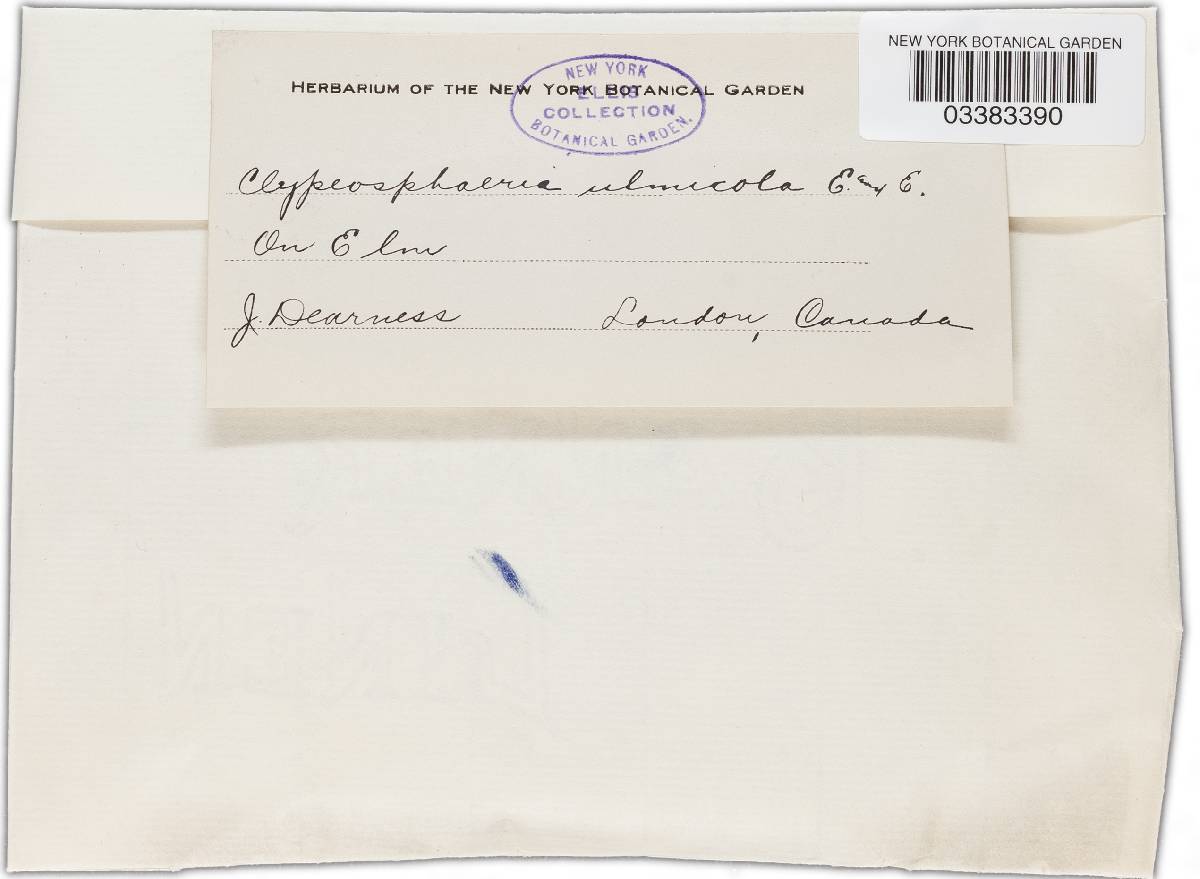 NEW YORK BOTANICAL GARDEN
03383390
HERBARIUM OF THE NEW YORK BOTANICAL GARDEN
NEW YORK
ELLIS
COLLECTION
BOTANICAL GARDEN.
Clypeosphaeria ulmicola E. and E.
On Elm
J. Dearness London, Canada